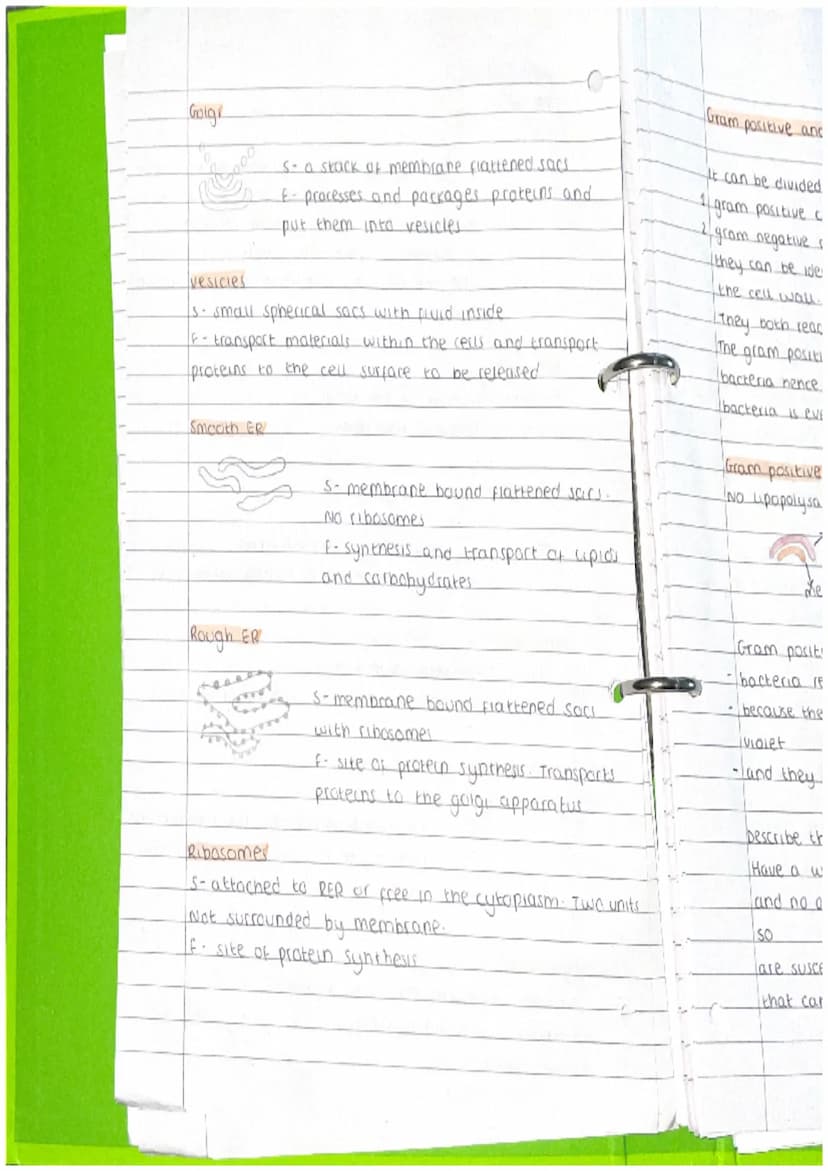 Golgi
S- a stack of membrane flattened sacs
F- processes and packages proteins and
put them into vesicles
vesicles
S- small spherical sacs with fluid inside
F- transport materials within the cells and transport
proteins to the cell surface to be released
Smooth ER
S- membrane bound flattened sacs.
No ribosomes
F- synthesis and transport of lipids
and carbohydrates
Rough ER
S- membrane bound flattened sacs
with ribosomes
F- site of protein synthesis. Transports
proteins to the golgi apparatus
Ribosomes
S- attached to RER or free in the cytoplasm. Two units
Not surrounded by membrane.
F- site of protein synthesis
Gram positive and
It can be divided
1. gram positive
2. gram negative
they can be
the cell wall.
They both
The gram
bacteria hence
bacteria is
Gram positive
No
Gram
- bacteria
- because the
violet
- and they
Describe
Have a
and no
so
are
that